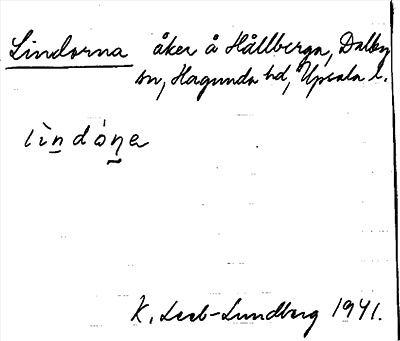 Lindorna åker å Hållberga, Dalby
sn, Hagunda hd, Upsala l.
lìndóṇa
K. Leeb-Lundberg 1941.